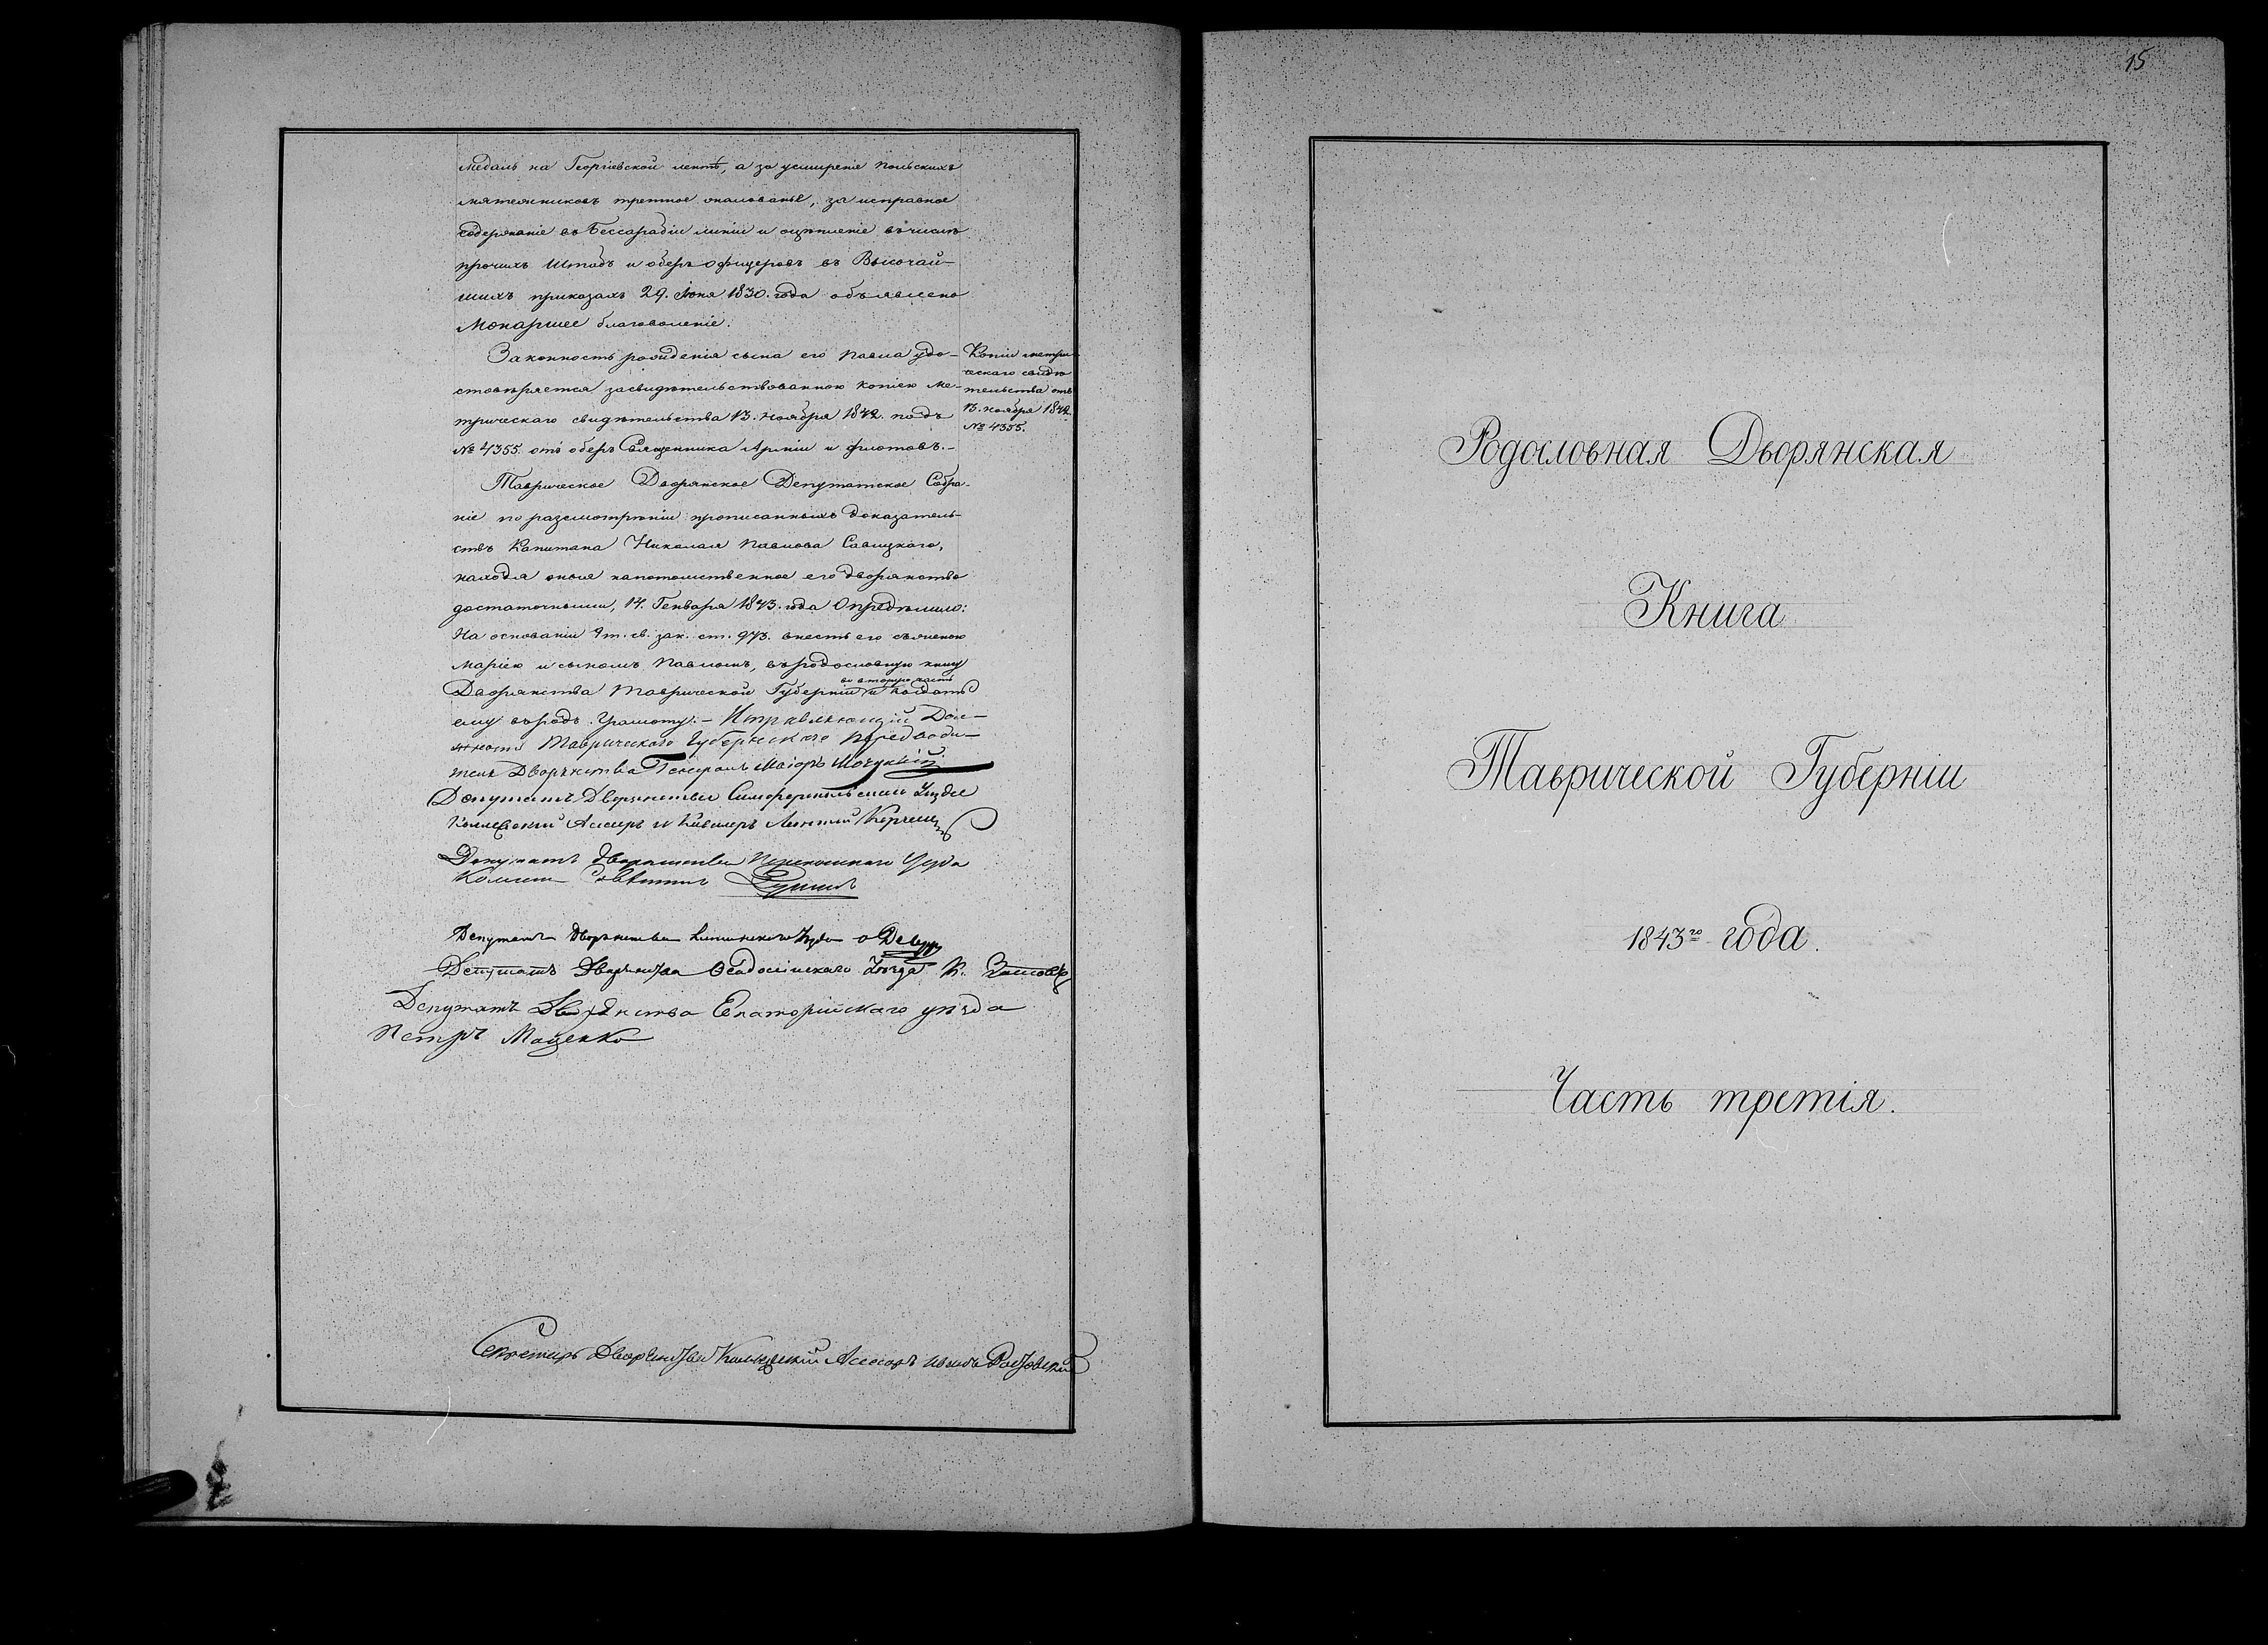 медаль на Георгіевской лентѣ, а за усмиреніе польскихъ
мятежниковъ третное жалованье, за исправное
содержаніе въ Бессарабіи линіи и оцѣпленіе въ числѣ
прочихъ Штабъ и оберъ офицеровъ въ Высочай-
шихъ приказахъ 29. Іюня 1830. года объявлено
Монаршее благоволеніе.
Законность рожденія сына его Павла удо-
стовѣряется засвидѣтельствованною копіею ме-
трическаго свидѣтельства 13. ноября 1842. подъ
№ 4355. отъ оберъ Священника Арміи и флотовъ.-
Копіи метри-
ческаго свидѣ-
тельства отъ
13. ноября 1842.
№ 4355.
Таврическое Дворянское Депутатское Собра-
ніе по разсмотрѣніи прописанныхъ доказатель-
ствъ Капитана Николая Павлова Савицкаго,
находя оныя на потомственное его дворянство
достаточными, 14. Генваря 1843. года Опредѣлило:
На основаніи 9 т. св. зак. ст. 973. внесть его съ женою
Маріею и сыномъ Павломъ, въ родословную книгу
во вторую часть
Дворянства Таврической Губерніи и выдать
ему въ родъ. Грамоту.- Исправляющій Дол-
жность Таврическаго Губернскаго Предводи-
теля Дворянства Генералъ Маіоръ
Депутатъ Дворянства Симферопольскаго Уѣзда
Коллежскій Ассесоръ и Кавалеръ Леонтій
Депутатъ Дворянства Перекопскаго Уѣзда
Совѣтникъ
Депутатъ Дворянства Уѣзда
Депутатъ Дворянства Ѳеодосійскаго Уѣзда К.
Депутатъ Дворянства Евпаторійскаго уѣзда
Петръ Маценко
Секретарь Дворянства Коллежскій Ассесоръ
15
Родословная Дворянская
Книга
Таврической Губерніи
1843го года.
Часть третія.